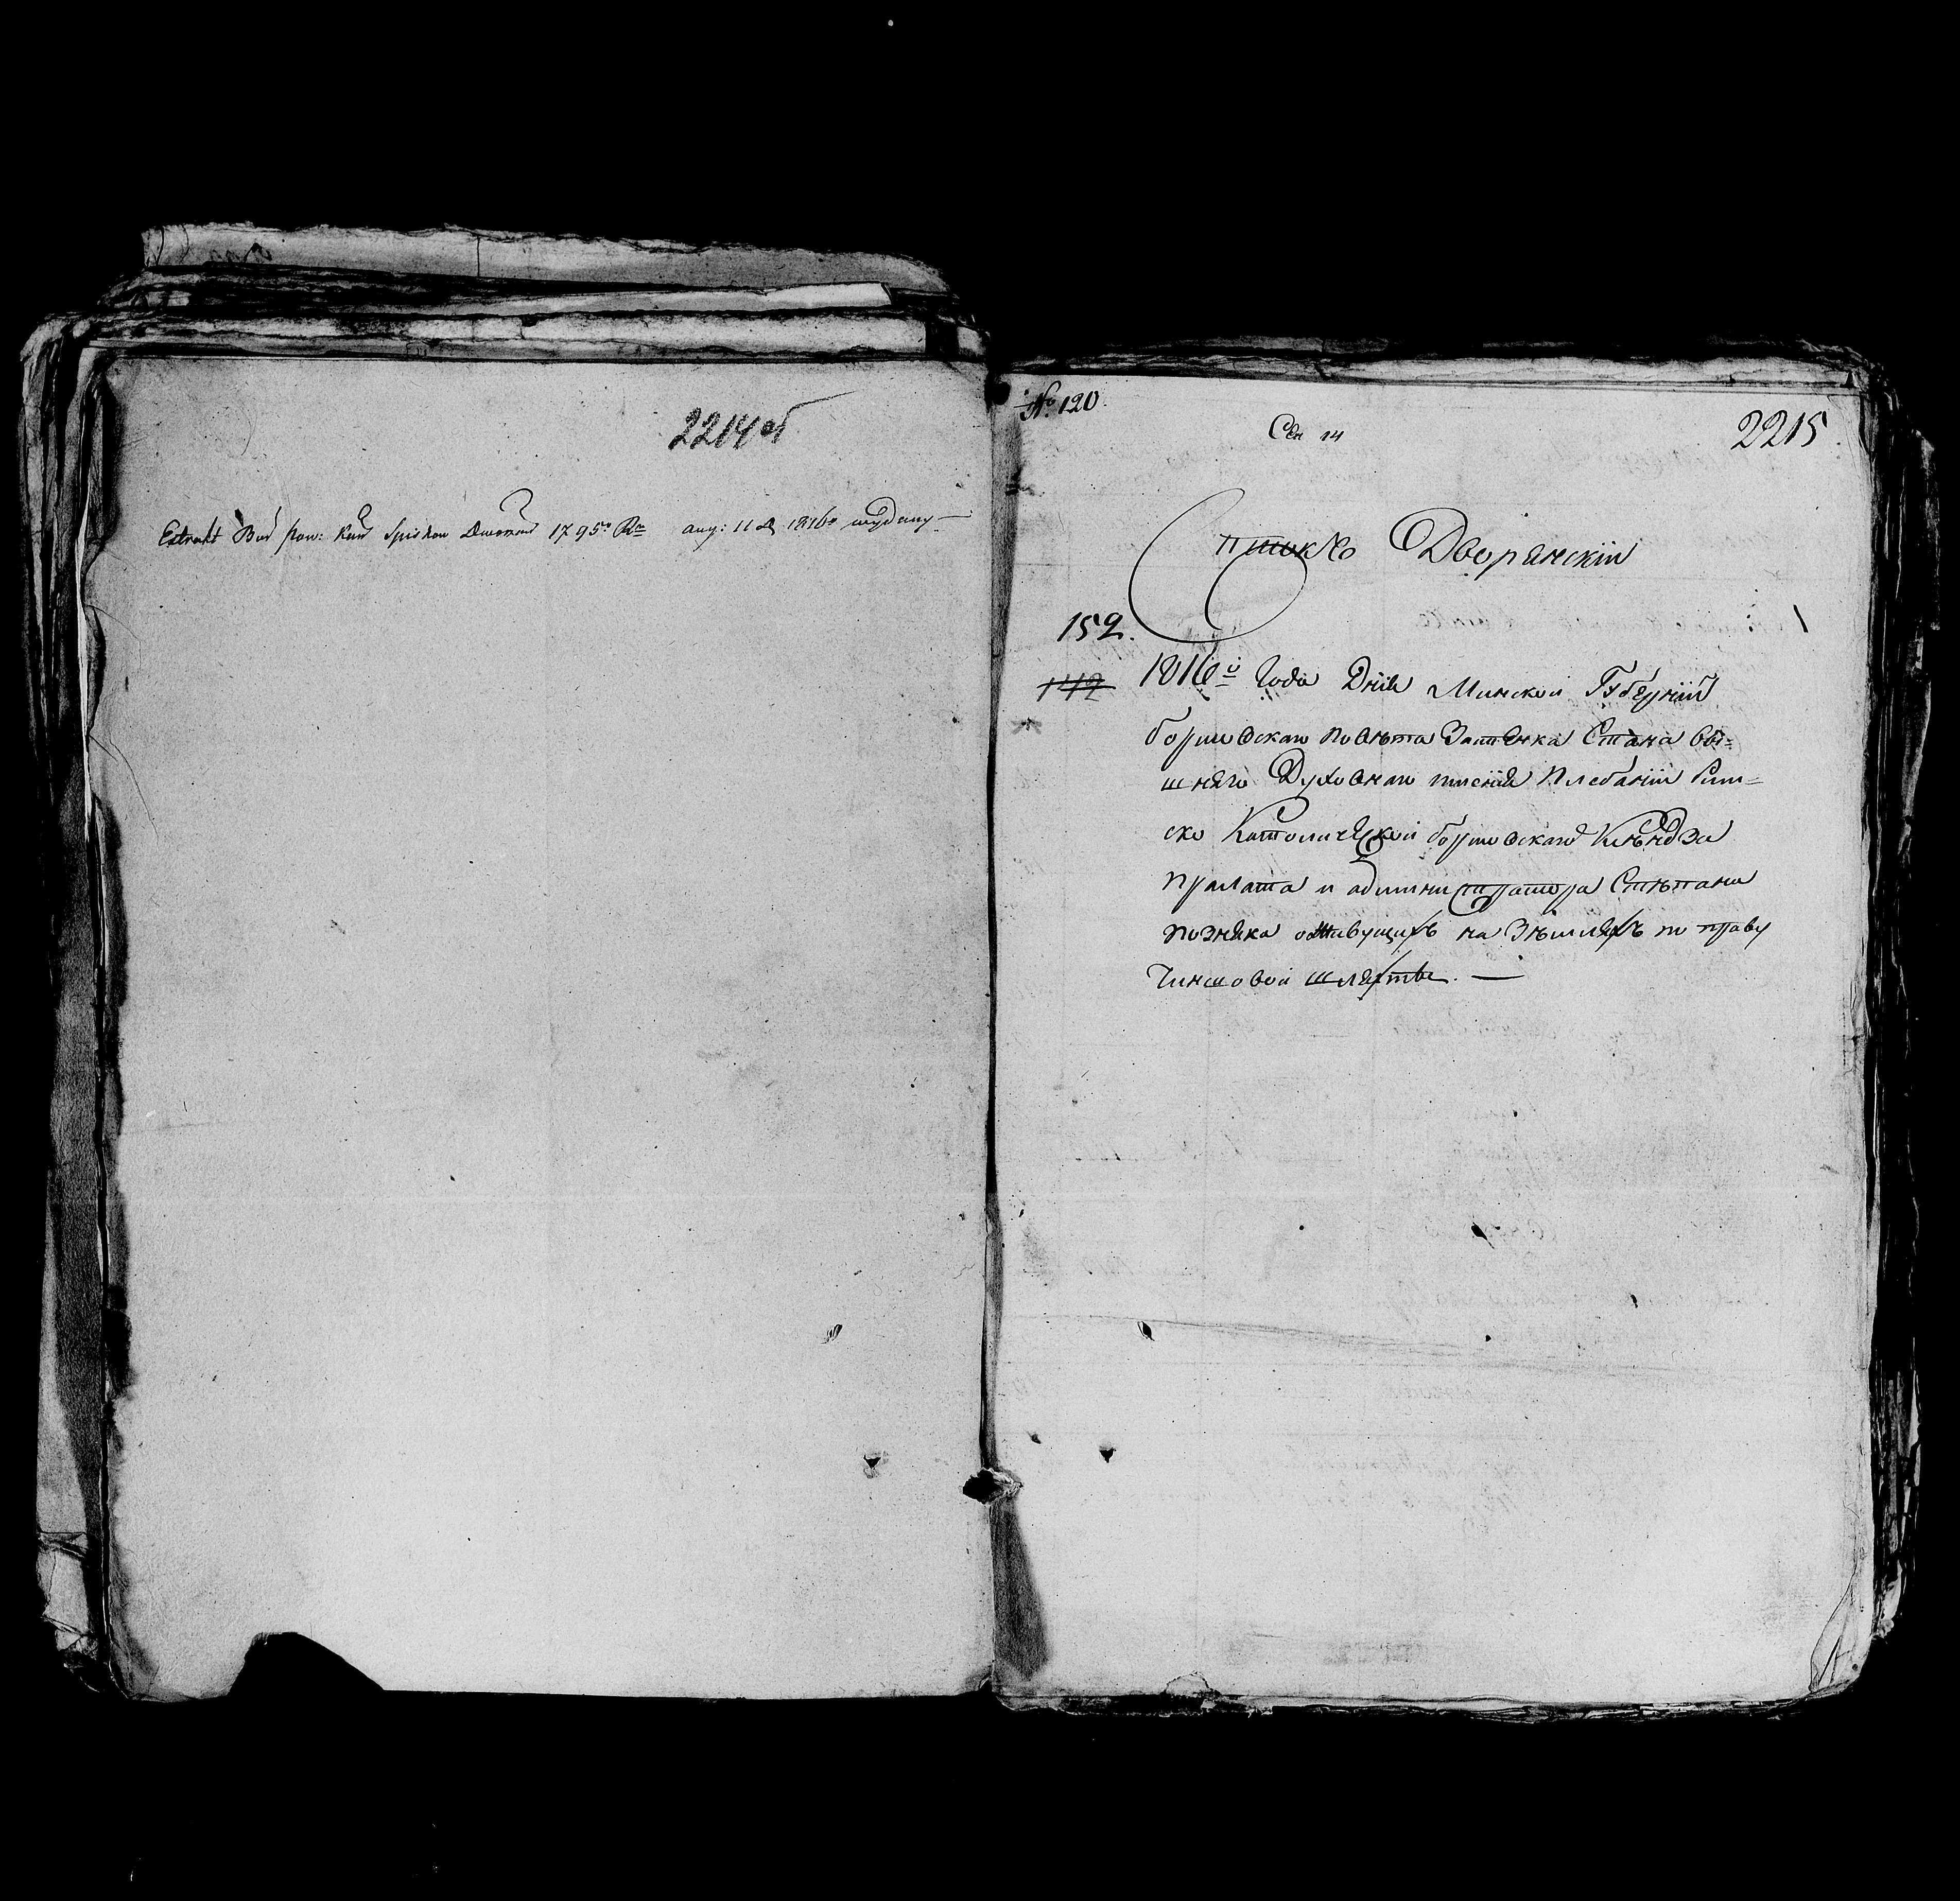 2214 об
Extrakt spiskow 1795° R. aug: 11 d 1816° wydany —
№ 120.
Сен 14
2215
Списокъ Дворянскій
152.
142
1816го Года Дніа Минской Губерніи
борисовскаго повѣта Застенка Стана вы=
шняго Духовнаго имеnія Плебаніи Рим=
ско Католической борисовскаго Ксѣндза
прелата и администратора Стѣпана
позняка о живущихъ на Зѣмляхъ по праву
Чиншовой шляхтѣ. —